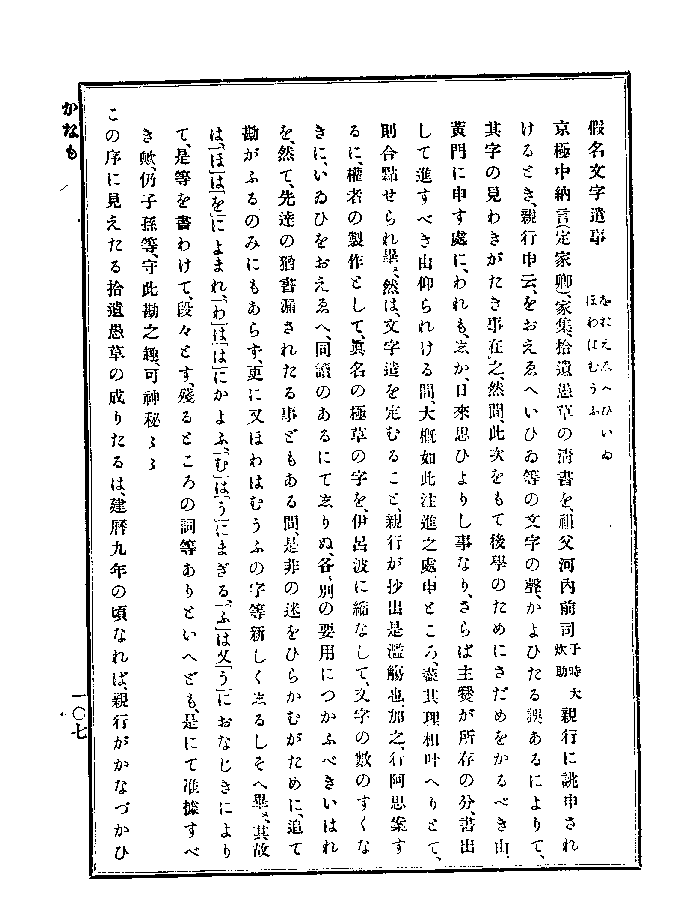 假名文字遣事 をおえゑへひいゐ
ほわはむうふ
京極中納言(定家卿)、家集、拾遺愚草の淸書を、祖父河內前司于時大炊助親行に誂申され
けるとき、親行申云、をおえゑへいひゐ等の文字の聲、かよひたる誤あるによりて、
其字の見わきがたき事在之、然間此次をもて後學のためにさだめをかるべき由、
黃門に申す處に、われも、ゑか、日來思ひよりし事なり、さらば主爨が所存の分、書出
して進すべき由仰られける間、大概如此注進之處、申ところ、盡其理相叶へりとて、
則合點せられ畢、然は、文字遣を定むること、親行が抄出是濫觴也、加之、行阿思案す
るに、權者の製作として、眞名の極草の字を、伊呂波に縮なして、文字の數のすくな
きに、いゐひをおえゑへ、同讀のあるにてゑりぬ、各、別の要用につかふべきいはれ
を、然て、先達の猶書漏されたる事どもある間、是非の迷をひらかむがために、追て
勘がふるのみにもあらす、更に又ほわはむうふの字等新しくゑるしそへ畢、其故
は、「ほ」は「を」によまれ、「わ」は「は」にかよふ、「む」は「う」にまぎる、「ふ」は又「う」におなじきにより
て、是等を書わけて、段々とす、殘るところの詞等ありといへども、是にて准據すべ
き歟、仍子孫等、守此勘之趣、可神秘々々
この序に見えたる拾遺愚草の成りたるは、建曆九年の頃なれば、親行がかなづかひ
かなも
一〇七